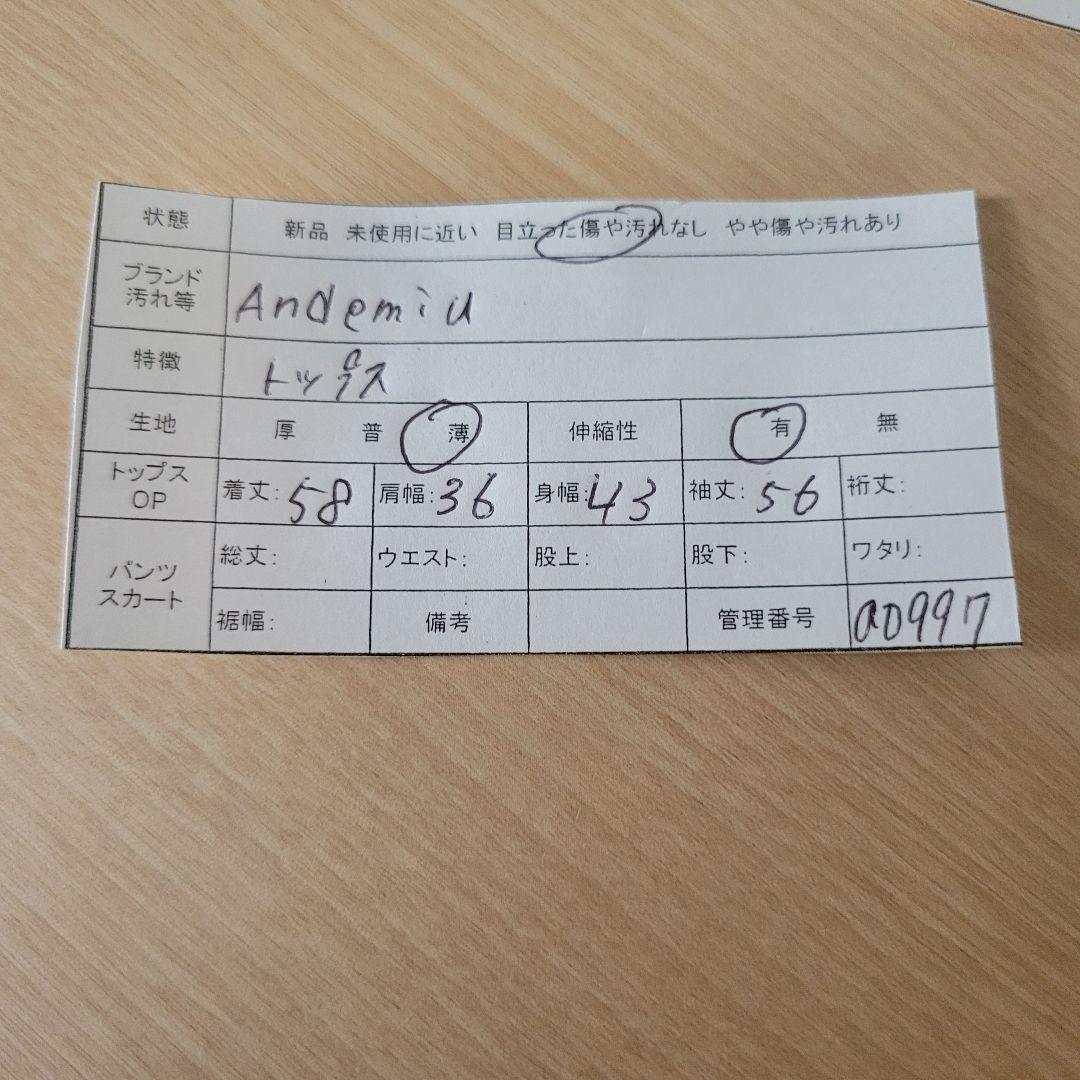 状態 新品 未使用に近い 目立った傷や汚れなし やや傷や汚れあり
ブランド
汚れ等 Andemiu
特徴 トップス
生地 厚 普 薄 伸縮性 有 無
トップス
OP 着丈:58 肩幅:36 身幅:43 袖丈:56 裄丈:
パンツ
スカート 総丈: ウエスト: 股上: 股下: ワタリ:
裾幅: 備考 管理番号 a0997